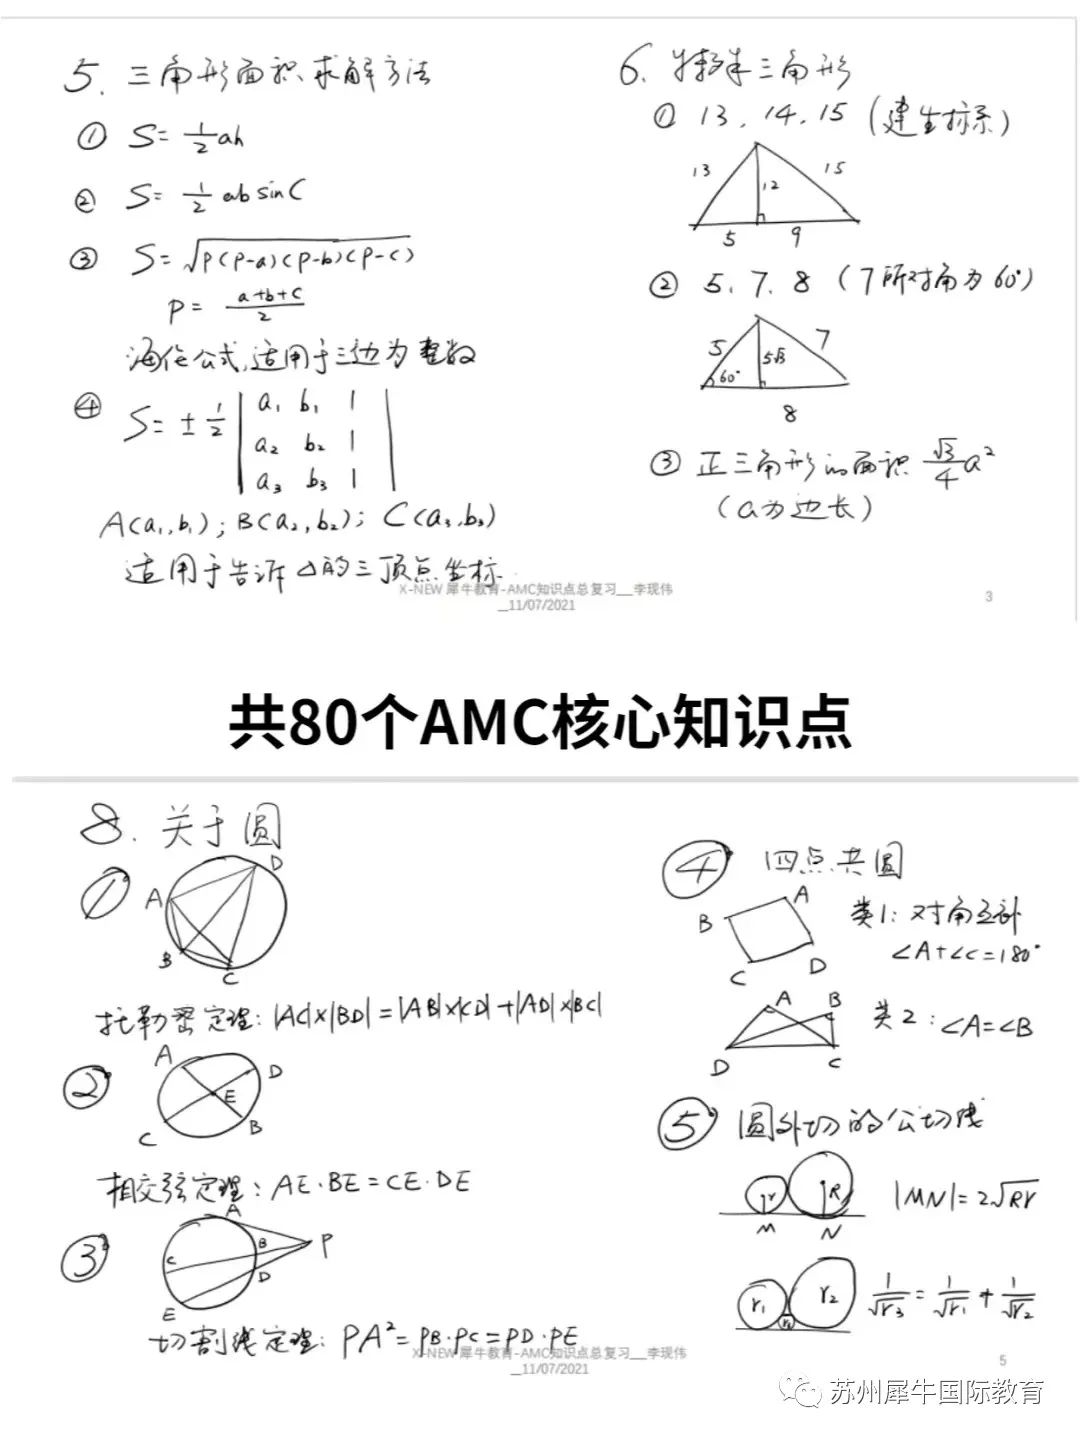 5. 三角形面积求解方法
① S=½ah
② S=½absinC
③ S=√(P(P-a)(P-b)(P-c))
P=(a+b+c)/2
海伦公式,适用于三边为整数
④ S=±½ | a₁ b₁ 1 |
a₂ b₂ 1
a₃ b₃ 1
A(a₁,b₁); B(a₂,b₂); C(a₃,b₃)
适用于告诉△的三顶点坐标.
6. 特殊三角形
① 13, 14, 15 (建坐标系)
13 12 15
5 9
② 5, 7, 8 (7所对角为60°)
5 5√3 7
60°
8
③ 正三角形的面积 √3/4 a²
(a为边长)
X-NEW 犀牛教育-AMC知识点总复习__李现伟
__11/07/2021
3
共80个AMC核心知识点
8. 关于圆
① A B C D
托勒密定理: |AC|×|BD|=|AB|×|CD|+|AD|×|BC|
② A D E C B
相交弦定理: AE·BE=CE·DE
③ A B P C D E
切割线定理: PA²=PB·PC=PD·PE
④ 四点共圆
A B C D
类1: 对角互补
∠A+∠C=180°
A B D C
类2: ∠A=∠B
⑤ 圆外切的公切线
r R M N
|MN|=2√Rr
r₁ r₂ r₃
1/√r₃=1/√r₁+1/√r₂
X-NEW 犀牛教育-AMC知识点总复习__李现伟
__11/07/2021
5
苏州犀牛国际教育